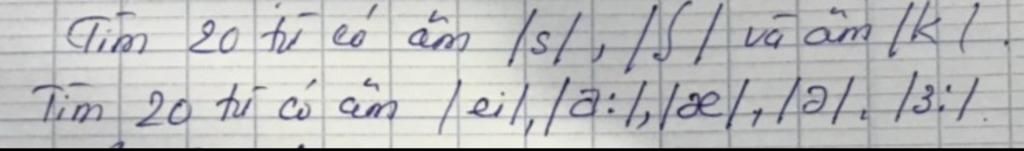 Tìm 20 từ có âm /s/, /ʃ/ và âm /k/.
Tìm 20 từ có âm /ei/, /a:/, /æ/, /ə/, /3:/.